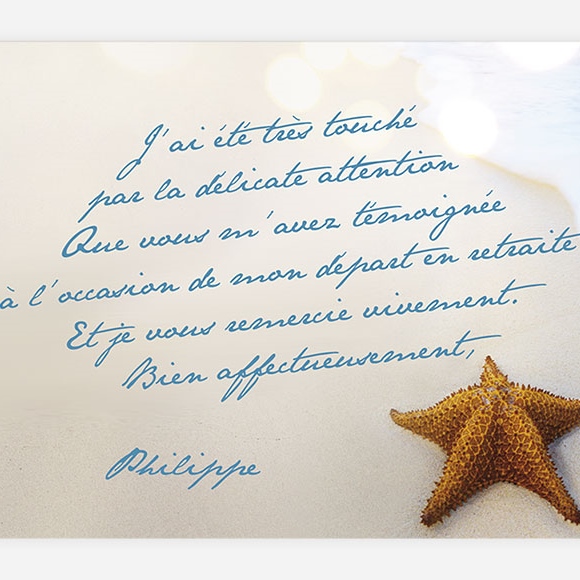 J'ai été très touché
par la délicate attention
Que vous m'avez témoignée
à l'occasion de mon départ en retraite
Et je vous remercie vivement.
Bien affectueusement,
Philippe